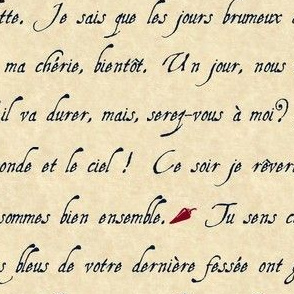 tte. Je sais que les jours brumeux
ma chérie, bientôt. Un jour, nous
il va durer, mais, serez-vous à moi?
onde et le ciel ! Ce soir je rêver
sommes bien ensemble. Tu sens
s bleus de votre dernière fessée ont